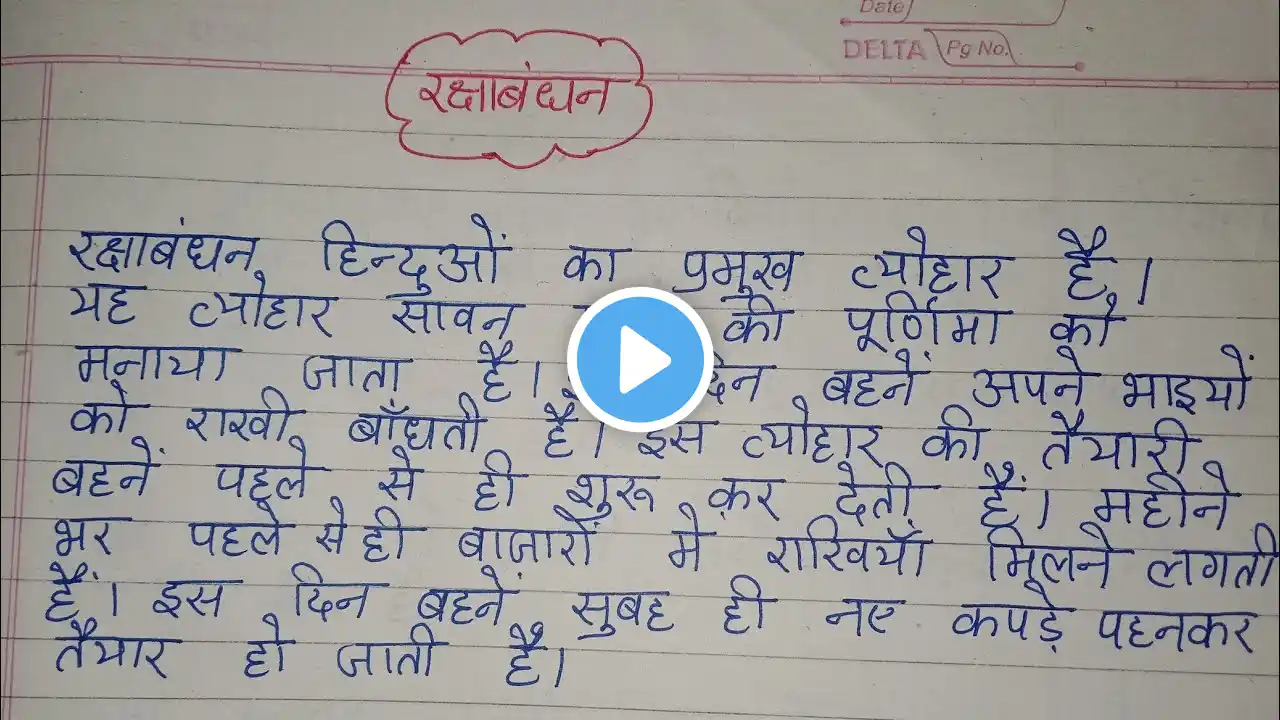 Date
DELTA Pg No.
रक्षाबंधन
रक्षाबंधन हिन्दुओं का प्रमुख त्योहार है।
यह त्योहार सावन की पूर्णिमा को
मनाया जाता है। बहनें अपने भाइयों
को राखी बाँधती है। इस त्योहार की तैयारी
बहनें पहले से ही शुरू कर देती हैं। महीने
भर पहले से ही बाजारों मे राखियाँ मिलने लगती
हैं। इस दिन बहनें सुबह ही नए कपड़े पहनकर
तैयार हो जाती है।